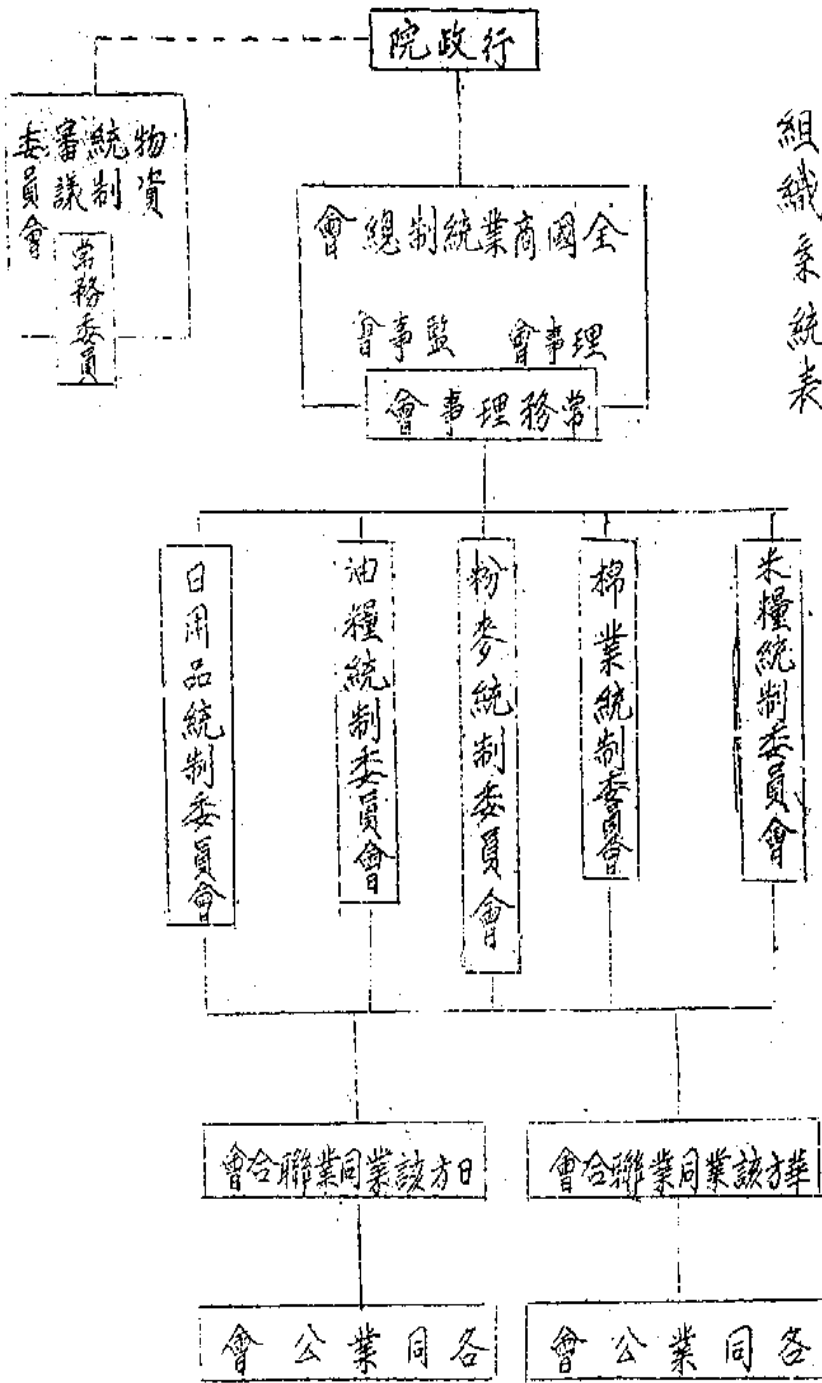 組織系統表
行政院
物資
統制
審議
委員會
常務委員
全國商業統制總會
理事會
監事會
常務理事會
米糧統制委員會
棉業統制委員會
粉麥統制委員會
油糧統制委員會
日用品統制委員會
華方該業同業聯合會
日方該業同業聯合會
各同業公會
各同業公會